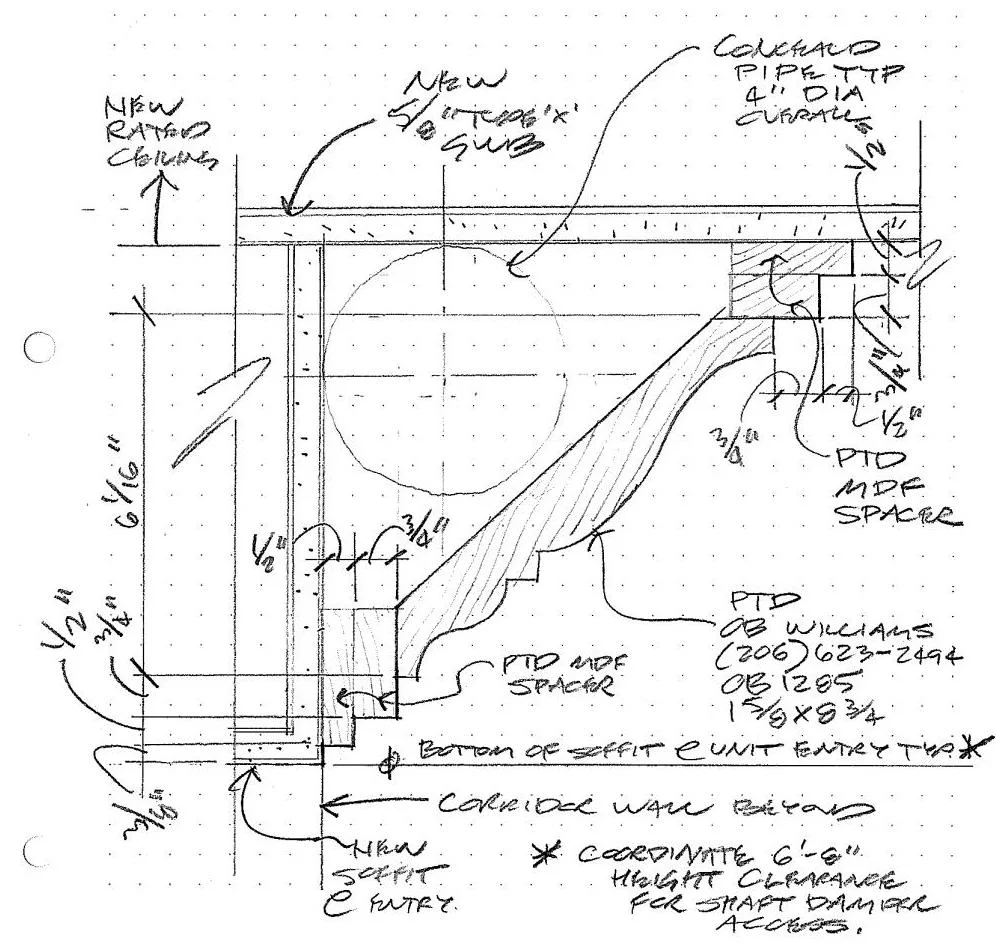 NEW
RATED
CEILING
NEW
5/8" TYPE 'X'
GWB
CONCEALD
PIPE TYP
4" DIA
OVERALL
1/2"
1"
3/4"
1/2"
3/4"
PTD
MDF
SPACER
6 1/16"
1/2"
3/4"
1/2"
3/4"
PTD MDF
SPACER
PTD
OB WILLIAMS
(206) 623-2494
OB 1285
1 5/8 X 8 3/4
BOTTOM OF SOFFIT @ UNIT ENTRY TYP. *
5/8"
CORRIDOR WALL BEYOND
NEW
SOFFIT
@ ENTRY.
* COORDINATE 6'-8"
HEIGHT CLEARANCE
FOR SHAFT DAMPER
ACCESS.